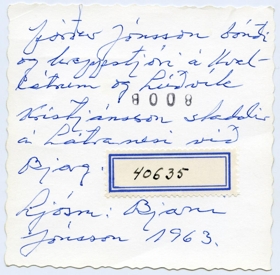 Þórður Jónsson bóndi
og hreppstjóri á Hval-
látrum og Lúðvík
8008
Kristjánsson staddir
á Látranesi við
Bjarg.
40635
Ljósm: Bjarni
Jónsson 1963.